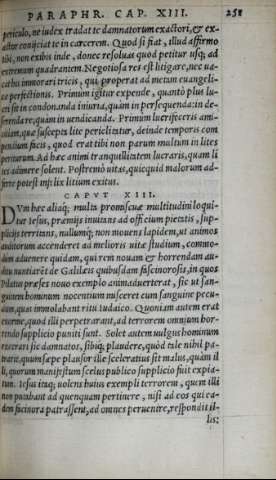 PARAPHR. CAP. XIII. 258
periculo, ne iudex tradat te damnatorum exactori, & ex-
actor conijciat te in carcerem. Quod si fiat, illud affirmo
tibi, non exibis inde, donec resoluas quod petitur usq; ad
extremum quadrantem. Negotiosa res est litigare, nec ua-
carbis immorari tricis, qui properat ad metam euangeli-
cæ perfectionis. Primum igitur expende, quanto plus lu-
cri sit in condonanda iniuria, quàm in persequenda: in de-
ferenda re, quàm in uendicanda. Primum lucrifeceris ami-
citiam, quæ suscepta lite periclitatur, deinde temporis com
pendium facis, quod erat tibi non parum multum in lites
periturum. Ad hæc animi tranquillitatem lucraris, quam li
tes adimere solent. Postremò uitas, quicquid malorum ad-
ferre potest infelix litium exitus.
CAPVT XIII.
DVm hæc aliaq; multa promiscuæ multitudini loqui-
tur Iesus, præmijs inuitans ad officium pietatis, sup-
plicijs territans, nullumq; non mouens lapidem, ut animos
auditorum accenderet ad melioris uitæ studium, commo-
dùm aduenere quidam, qui rem nouam & horrendam au-
ditu nuntiarēt de Galilæis quibusdam facinorosis, in quos
Pilatus præfes nouo exemplo animaduerterat, sic ut san-
guinem hominum nocentium misceret cum sanguine pecu-
dum, quas immolabant ritu Iudaico. Quoniam autem erat
enorme, quod illi perpetrarant, ad terrorem omnium hor-
rendo supplicio puniti sunt. Solet autem uulgus hominum
execrari sic damnatos, sibiq; plaudere, quòd tale nihil pa-
trarit, quum sæpe plausor ille sceleratius sit malus, quàm il
li, quorum manifestum scelus publico supplicio fuit expia-
tum. Iesus itaq; uolens huius exempli terrorem, quem illi
non putabant ad quenquam pertinere, nisi ad eos qui ea-
dem facinora patrassent, ad omnes peruenire, respondit il-
lis: